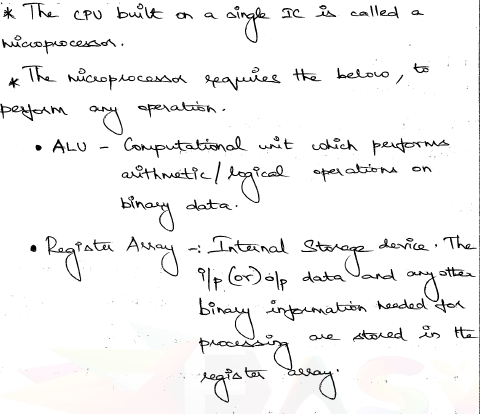 * The CPU built on a single IC is called a
microprocessor.
* The microprocessor requires the below, to
perform any operation.
• ALU - Computational unit which performs
arithmetic/logical operations on
binary data.
• Register Array -: Internal Storage device. The
i/p (or) o/p data and any other
binary information needed for
processing are stored in the
register array.